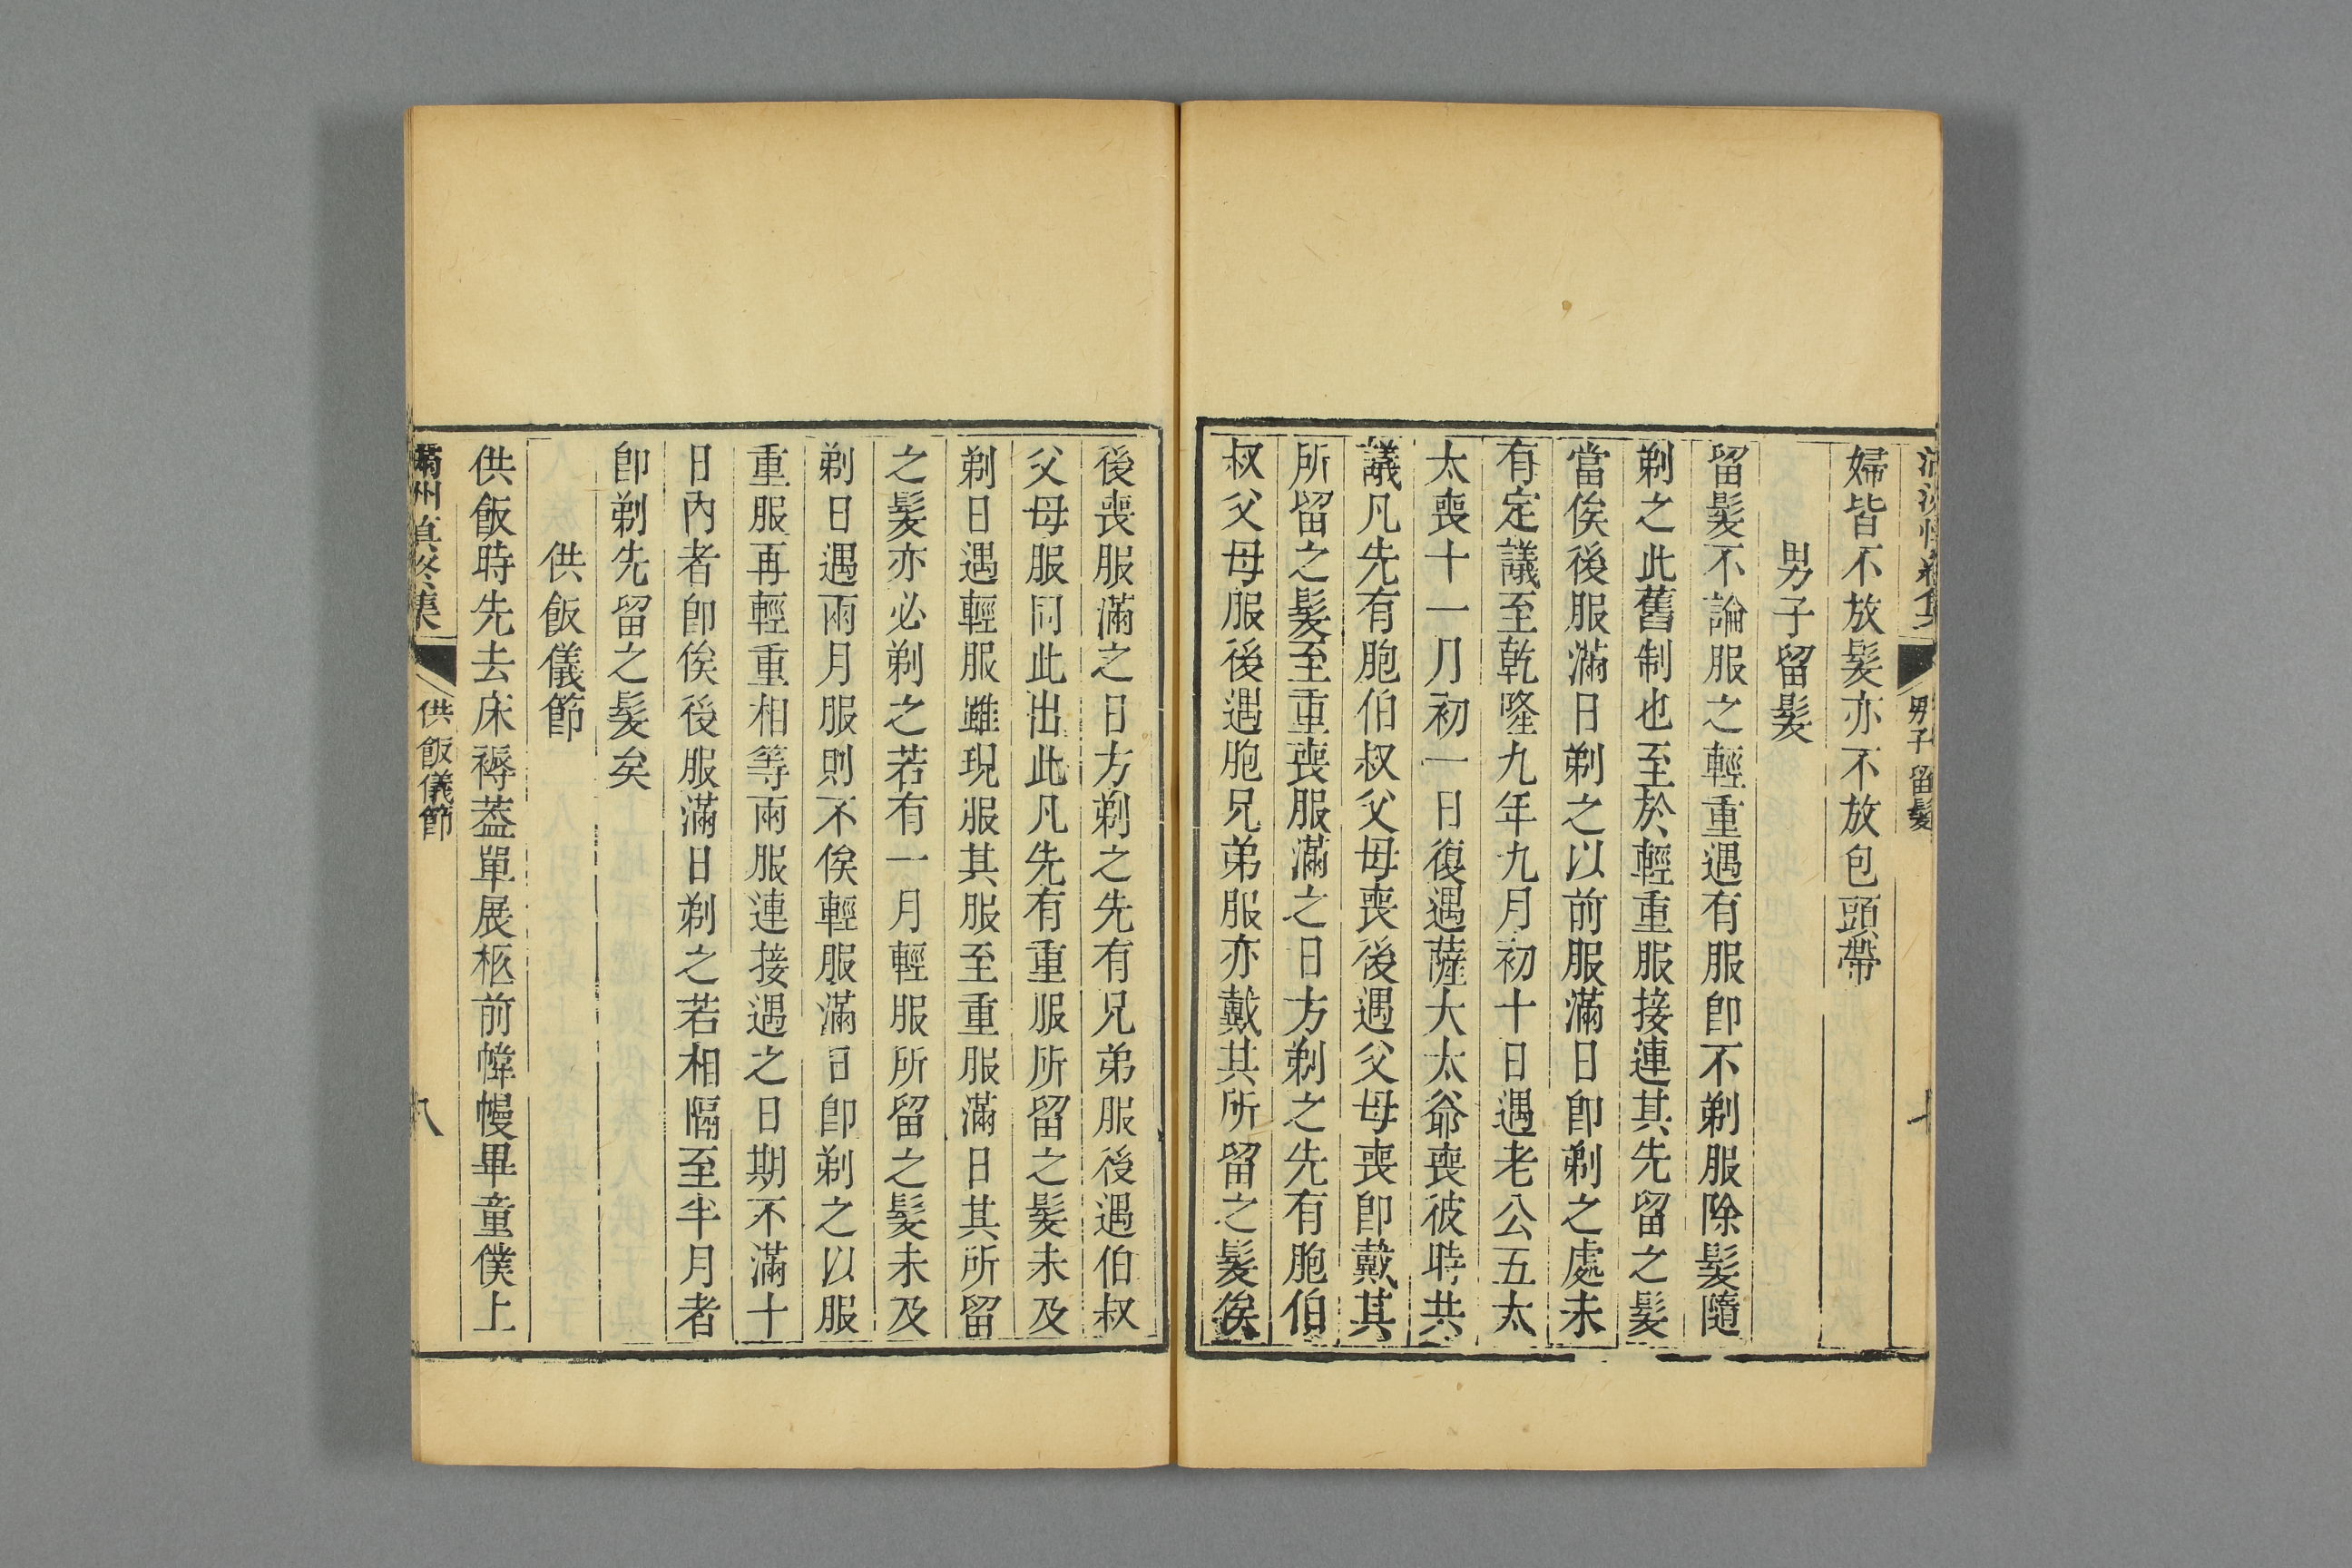 婦皆不放髮亦不放包頭帶
男子留髮
留髮不論服之輕重遇有服卽不剃服除髮隨
剃之此舊制也至於輕重服接連其先留之髮
當俟後服滿日剃之以前服滿日卽剃之處未
有定議至乾隆九年九月初十日遇老公五太
太喪十一月初一日復遇薩大太爺喪彼時共
議凡先有胞伯叔父母喪後遇父母喪卽戴其
所留之髮至重喪服滿之日方剃之先有胞伯
叔父母服後遇胞兄弟服亦戴其所留之髮俟
男子留髮
後喪服滿之日方剃之先有兄弟服後遇伯叔
父母服同此出此凡先有重服所留之髮未及
剃日遇輕服雖現服其服至重服滿日其所留
之髮亦必剃之若有一月輕服所留之髮未及
剃日遇兩月服則不俟輕服滿日卽剃之以服
重服再輕重相等兩服連接遇之日期不滿十
日內者卽俟後服滿日剃之若相隔至半月者
卽剃先留之髮矣
供飯儀節
供飯時先去床褥葢單展柩前幃幔畢童僕上
滿州慎終集
供飯儀節
八